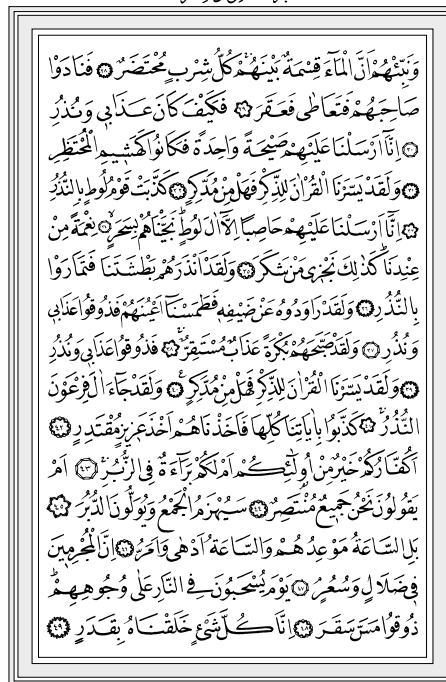 وَنَبِّئْهُمْ اَنَّ الْمَٓاءَ قِسْمَةٌ بَيْنَهُمْۚ كُلُّ شِرْبٍ مُحْتَضَرٌ ﴿٢٨﴾ فَنَادَوْا
صَاحِبَهُمْ فَتَعَاطٰى فَعَقَرَ ﴿٢٩﴾ فَكَيْفَ كَانَ عَذَاب۪ي وَنُذُرِ
﴿٣٠﴾ اِنَّٓا اَرْسَلْنَا عَلَيْهِمْ صَيْحَةً وَاحِدَةً فَكَانُوا كَهَش۪يمِ الْمُحْتَظِرِ
﴿٣١﴾ وَلَقَدْ يَسَّرْنَا الْقُرْاٰنَ لِلذِّكْرِ فَهَلْ مِنْ مُدَّكِرٍ ﴿٣٢﴾ كَذَّبَتْ قَوْمُ لُوطٍ بِالنُّذُرِ
﴿٣٣﴾ اِنَّٓا اَرْسَلْنَا عَلَيْهِمْ حَاصِبًا اِلَّٓا اٰلَ لُوطٍۜ نَجَّيْنَاهُمْ بِسَحَرٍۙ ﴿٣٤﴾ نِعْمَةً مِنْ
عِنْدِنَاۜ كَذٰلِكَ نَجْز۪ي مَنْ شَكَرَ ﴿٣٥﴾ وَلَقَدْ اَنْذَرَهُمْ بَطْشَتَنَا فَتَمَارَوْا
بِالنُّذُرِ ﴿٣٦﴾ وَلَقَدْ رَاوَدُوهُ عَنْ ضَيْفِه۪ فَطَمَسْنَٓا اَعْيُنَهُمْ فَذُوقُوا عَذَاب۪ي
وَنُذُرِ ﴿٣٧﴾ وَلَقَدْ صَبَّحَهُمْ بُكْرَةً عَذَابٌ مُسْتَقِرٌّۚ ﴿٣٨﴾ فَذُوقُوا عَذَاب۪ي وَنُذُرِ
﴿٣٩﴾ وَلَقَدْ يَسَّرْنَا الْقُرْاٰنَ لِلذِّكْرِ فَهَلْ مِنْ مُدَّكِرٍ۟ ﴿٤٠﴾ وَلَقَدْ جَٓاءَ اٰلَ فِرْعَوْنَ
النُّذُرُۚ ﴿٤١﴾ كَذَّبُوا بِاٰيَاتِنَا كُلِّهَا فَاَخَذْنَاهُمْ اَخْذَ عَز۪يزٍ مُقْتَدِرٍ ﴿٤٢﴾
اَكُفَّارُكُمْ خَيْرٌ مِنْ اُو۬لٰٓئِكُمْ اَمْ لَكُمْ بَرَٓاءَةٌ فِي الزُّبُرِۚ ﴿٤٣﴾ اَمْ
يَقُولُونَ نَحْنُ جَم۪يعٌ مُنْتَصِرٌ ﴿٤٤﴾ سَيُهْزَمُ الْجَمْعُ وَيُوَلُّونَ الدُّبُرَ ﴿٤٥﴾
بَلِ السَّاعَةُ مَوْعِدُهُمْ وَالسَّاعَةُ اَدْهٰى وَاَمَرُّ ﴿٤٦﴾ اِنَّ الْمُجْرِم۪ينَ
ف۪ي ضَلَالٍ وَسُعُرٍۢ ﴿٤٧﴾ يَوْمَ يُسْحَبُونَ فِي النَّارِ عَلٰى وُجُوهِهِمْۜ
ذُوقُوا مَسَّ سَقَرَ ﴿٤٨﴾ اِنَّا كُلَّ شَيْءٍ خَلَقْنَاهُ بِقَدَرٍ ﴿٤٩﴾